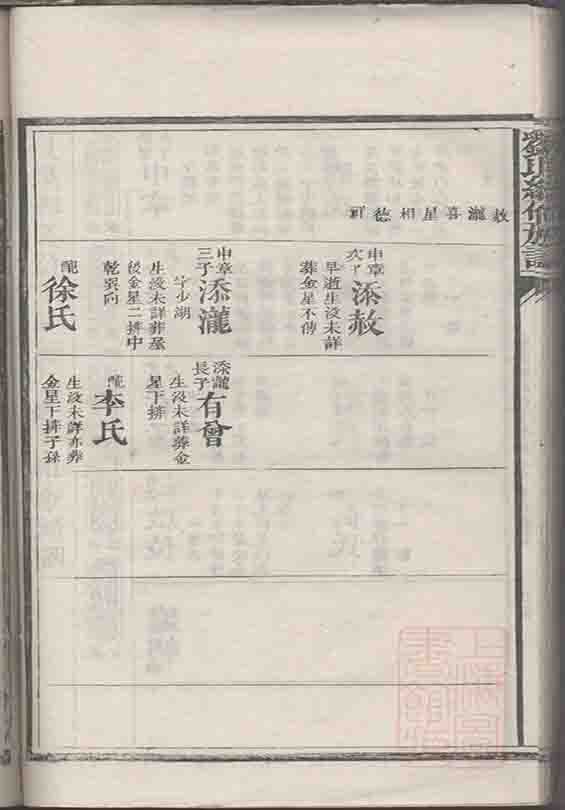 劉氏續修族譜
赦瀧喜星相德訶
申章
次子
添赦
早逝生沒未詳
葬金星不傳
申章
三子
添瀧
字少湖
生沒未詳葬屋
後金星二排中
乾巽向
配
徐氏
添瀧
長子
有會
生沒未詳葬金
星下排
配
李氏
生沒未詳亦葬
金星下排子孫
上海圖
書館藏